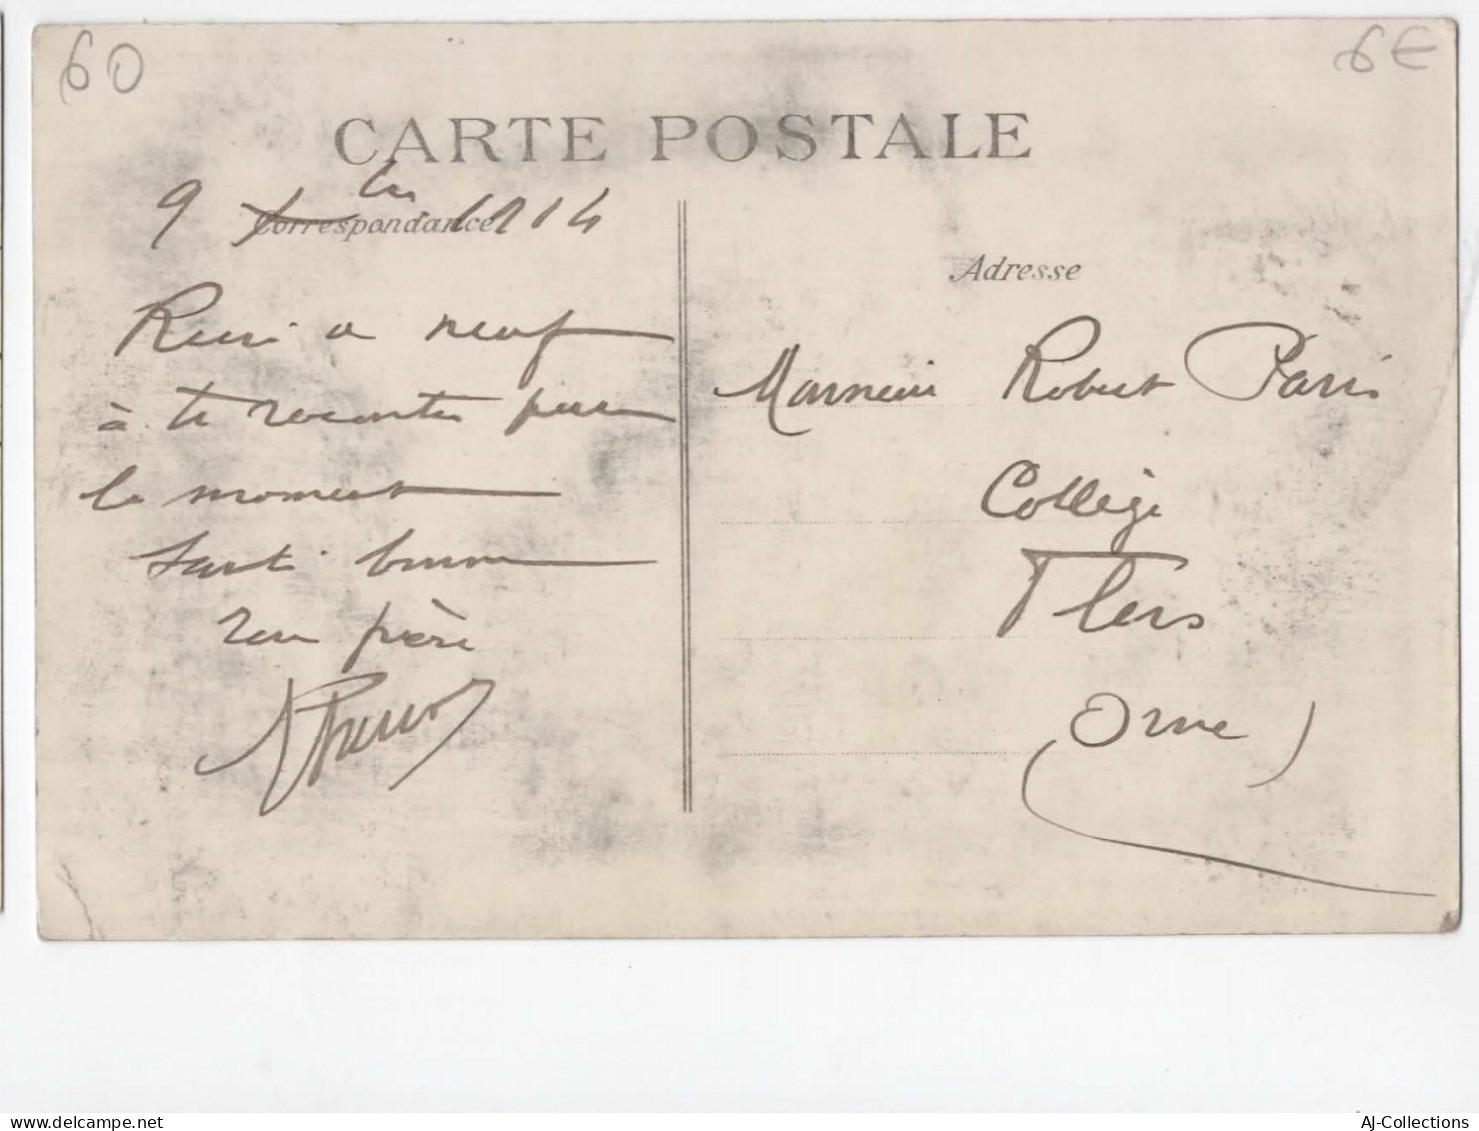 60
6€
CARTE POSTALE
9 1914
Correspondance
Rien à neuf
à te raconter pour
le moment
Santé bonne
Ton père
Adresse
Monsieur Robert Paris
Collège
Flers
(Orne)
AJ-Collections